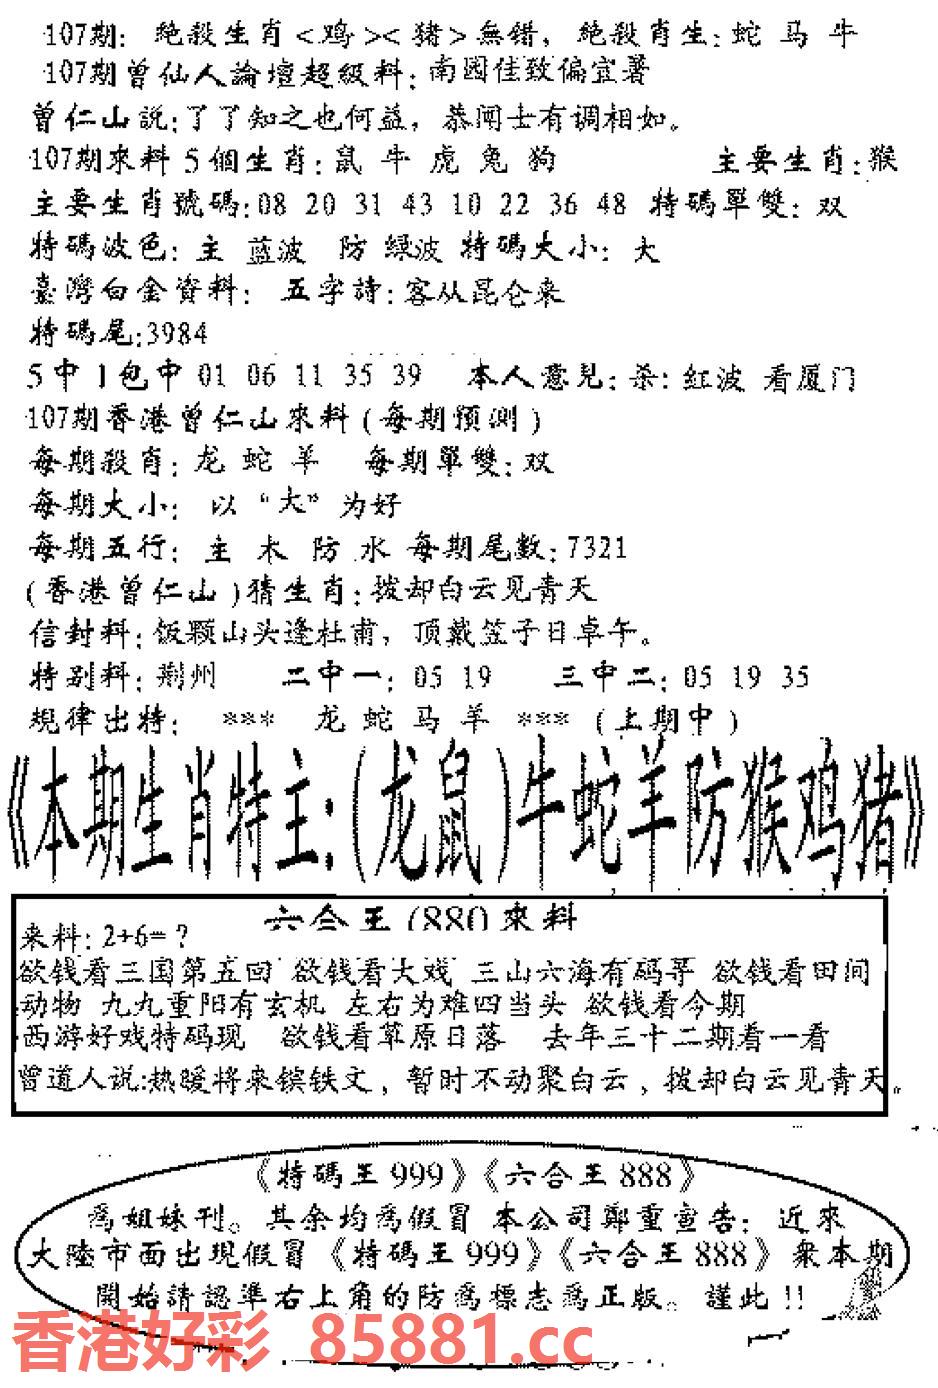 107期: 絶殺生肖<鸡><猪>無错, 絶殺肖生: 蛇 马 牛
107期曾仙人論壇超級料: 南园佳致偏宜暑
曾仁山説: 了了知之也何益, 恭闻士有调相如。
107期來料 5 個生肖: 鼠 牛 虎 兔 狗 主要生肖: 猴
主要生肖號碼: 08 20 31 43 10 22 36 48 特碼單雙: 双
特碼波色: 主 蓝波 防 绿波 特碼大小: 大
臺灣白金資料: 五字詩: 客从昆仑来
特碼尾: 3984
5 中 1 包中 01 06 11 35 39 本人意見: 杀: 红波 看厦门
107期香港曾仁山來料 (每期预测)
每期殺肖: 龙 蛇 羊 每期單雙: 双
每期大小: 以 “大” 为好
每期五行: 主 木 防 水 每期尾數: 7321
(香港曾仁山) 猜生肖: 拨却白云见青天
信封料: 饭颗山头逢杜甫, 顶戴笠子日卓午。
特别料: 荆州 二中一: 05 19 三中二: 05 19 35
規律出特: *** 龙 蛇 马 羊 *** (上期中)
《本期生肖特主: (龙鼠) 牛蛇羊防猴鸡猪》
六合王 (880) 來料
来料: 2+6=?
欲钱看三国第五回 欲钱看大戏 三山六海有码寻 欲钱看田间
动物 九九重阳有玄机 左右为难四当头 欲钱看今期
西游好戏特码现 欲钱看草原日落 去年三十二期看一看
曾道人说: 热暖将来镔铁文, 暂时不动聚白云, 拨却白云见青天。
《特碼王 999》《六合王 888》
爲姐妹刊。其余均爲假冒 本公司鄭重宣告: 近來
大陸市面出現假冒《特碼王 999》《六合王 888》衆本期
開始請認準右上角的防爲標志爲正版。謹此!!
香港好彩 85881.cc